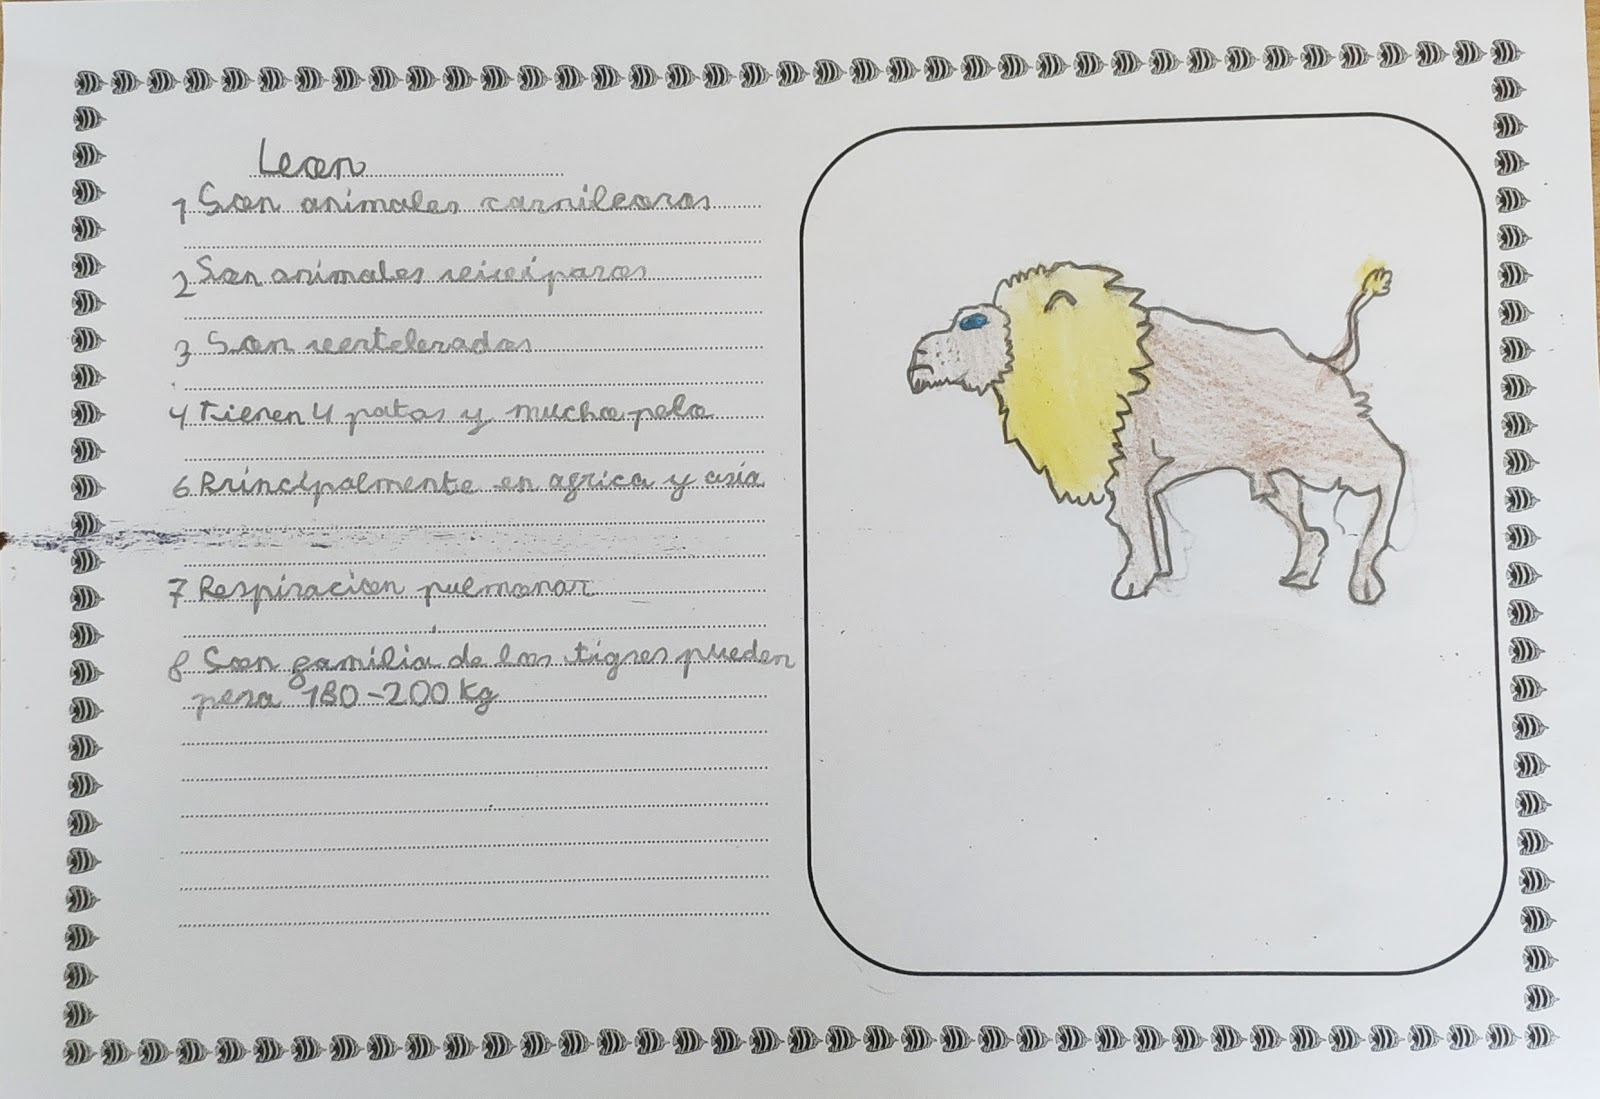 Leon
1 Son animales carnivoros
2 Son animales viviparos
3 Son vertebrados
4 Tienen 4 patas y mucho pelo
6 Principalmente en africa y asia
7 Respiracion pulmonar
8 Son familia de los tigres pueden
pesa 180-200 kg